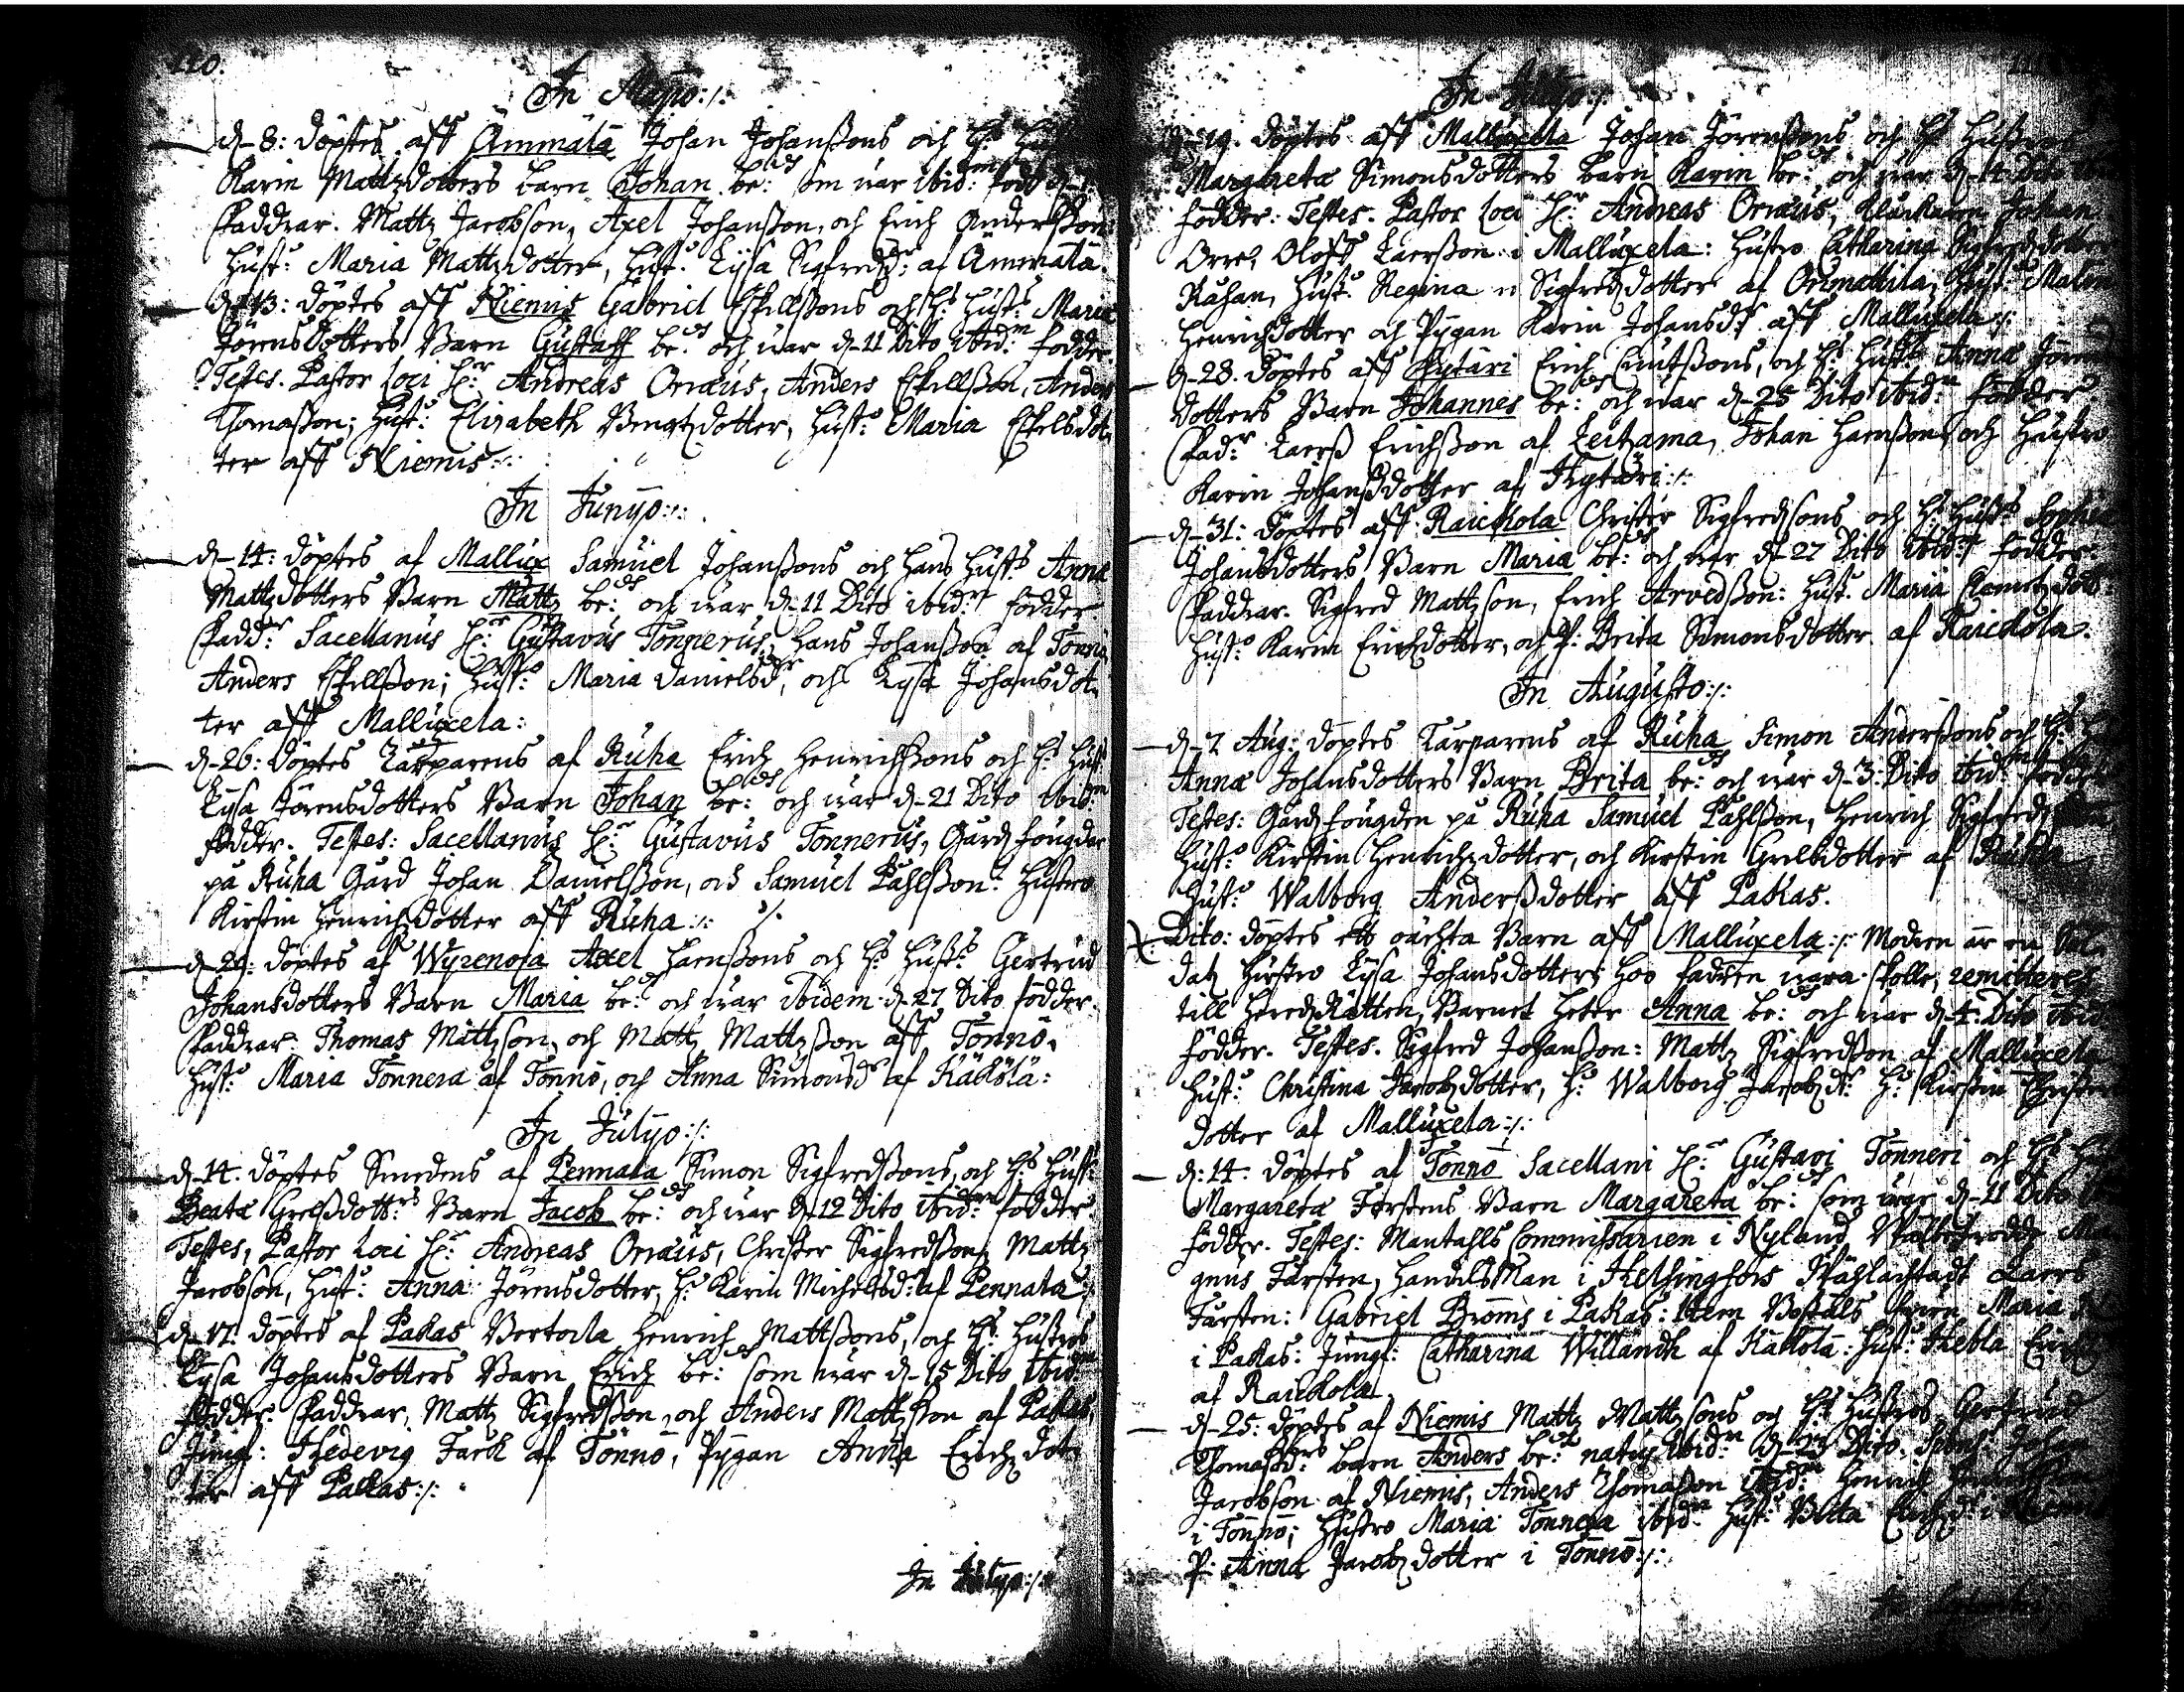 110.
In Maÿo:/:
d. 8: döptes aff Ammätä Johan Johanßons och hs:
Karin Mattzdotters barn Johan be:dt som war ibid:m född
Faddrar. Mattz Jacobßon, Axel Johanßon, och Erich Anderßon
Hust: Maria Mattzdotter, Hust: Lijsa Sigfredzd: af Ammätä.
d. 13: döptes aff Niemis Gabriel Eskillßons och hs: Hust: Maria
Jörensdotters Barn Gustaff be:dt och war d. 11 Dito ibid:m födder.
Testes. Pastor Loci H:r Andreas Orræus, Anders Eskillßon, Anders
Thomaßon; Hust: Elisabeth Bengtzdotter, Hust: Maria Eskelsdot-
ter aff Niemis:/:
In Junÿo:/:
d. 14: döptes af Mallux Samüel Johanßons och hans Hust: Anna
Mattzdotters Barn Mattz be:dt och war d. 11 Dito ibid:m födder.
Fadd:r Sacellanus H:r Gustavus Tonnerus, Hans Johanßon af Tönnö
Anders Eskillßon; Hust: Maria Danielsd:r och Lÿsa Johansdot-
ter aff Malluxela:
d. 26: döptes Tarparens af Ruha Erich Henrichßons och hs: Hust:
Lÿsa Jörensdotters Barn Johan be:dt och war d. 21 Dito ibid:m
födder. Testes: Sacellanus H:r Gustavus Tonnerus, Gårdzfougden
på Ruha Gård Johan Danielßon, och Samuel Påhlßon: Hustro
Kirstin Henrichzdotter aff Ruha:/:
d. 29: döptes af Wÿrenoja Axel Harnßons och hs: Hust: Gertrud
Johansdotters Barn Maria be:dt och war ibidem d. 27 Dito födder.
Faddrar: Thomas Mattzson, och Mattz Mattzßon aff Tönnö.
Hust: Maria Tonnera af Tönnö, och Anna Simonsd:r af Käkölä:
In Julÿo:/:
d. 14. döptes Smedens af Pennala Simon Sigfredßons, och hs: Hust:
Beata Grelßdott:rs Barn Jacob be:dt och war d. 12 Dito ibid:m födder.
Testes, Pastor Loci H:r Andreas Orræus, Christer Sigfredßon, Mattz
Jacobson, Hust: Anna Jörensdotter, H: Karin Michelsd: af Pennala:/:
d. 17. döptes af Pakas Bertoila Henrich Mattßons, och hs: Hustros
Lÿsa Johansdotters Barn Erich be:dt som war d. 15 Dito ibid:m
födder: Faddrar, Mattz Sigfredßon, och Anders Mattzßon af Pakas,
Jungf: Hedevig Fark af Tönnö, Pÿgan Anna Erichzdot-
ter aff Pakas:/:
In Julÿo:/:
In Julÿo:/:
d. 19. döptes aff Malluxela Johan Jörenßons och hs: Hustro
Margareta Simonsdotters Barn Karin be:dt och war d. 14 Dito
födder: Testes. Pastor Loci H:r Andreas Orræus, Klåckaren Johan
Orre, Oloff Larrßon i Malluxela: Hustro Catharina Sigfredzdotter
Rahan, Hust: Regina Sigfredzdotter af Orimattila, Hust: Malin
Henrichsdotter och Pÿgan Karin Johansd:r aff Malluxela:/:
d. 28. döptes aff Kÿtäri Erich Knutßons, och hs: Hust: Anna Jören
dotters Barn Johannes be:dt och war d. 25 Dito ibid:m födder
Fad:r Larß Erichßon af Leitzama, Johan Harnßon, och Hustro
Karin Johansdotter af Kÿtäri:/:
d. 31: döptes aff Raickola Christer Sigfredsons och hs: Hust: Sophia
Johansdotters Barn Maria be:dt och war d. 27 Dito ibid:m födder:
Faddrar. Sigfred Mattzson, Erich Arvedßon: Hust: Maria
Hust: Karin Erichzdotter, och P: Brita Simonsdotter af Raickola.
In Augusto:/:
d. 7. Aug: döptes Tarparens af Ruha Simon Anderßons och hs:
Anna Johansdotters Barn Brita be:dt och war d. 3. Dito ibid:m födder
Testes: Gårdzfougden på Ruha Samuel Påhlßon, Henrich Sigfredz
Hust: Kirstin Henrichzdotter, och Kirstin Grelsdotter af Ruha
Hust: Walborg Anderßdotter aff Pakas.
Dito: döptes ett oächta Barn aff Malluxela:/: Modren är en Sol-
datz Hustro Lÿsa Johansdotter; hoo fadren wara skulle, remitteres
till HäredzRätten, Barnet heter Anna be:dt och war d. 4. Dito ibid
födder. Testes. Sigfred Johanßon: Mattz Sigfredßon af Malluxela
Hust: Christina Jacobzdotter, H: Walborg Jacobzd:r H: Kirstin Christers
dotter af Malluxela:/:
d. 14. döptes af Tönnö Sacellani H:r Gustavi Tonneri och hs:
Margareta Farstens Barn Margareta be:dt som war d. 11 Dito
födder. Testes: Mantahls Commissarien i Nyland Wälbetrodde Ma-
gnus Farsten, HandelsMan i Helsingfors Wählachtadt Larrs
Farsten: Gabriel Bröms i Pakas: Item Befäls Maria
i Pakas: Jungf: Catharina Willandh af Käkölä: Hust: Hebla
af Raickola.
d. 25: döptes af Niemis Mattz Mattzsons och hs: Hustros Gertrud
Thomaßd:rs barn Anders be:dt natus ibid:m Dito. Johan
Jacobson af Niemis, Anders Thomaßon ibid:m Henrich
i Tönnö; Hustro Maria Tonnera ibid:m Hust: Beata
P: Anna Jacobzdotter i Tönnö:/: